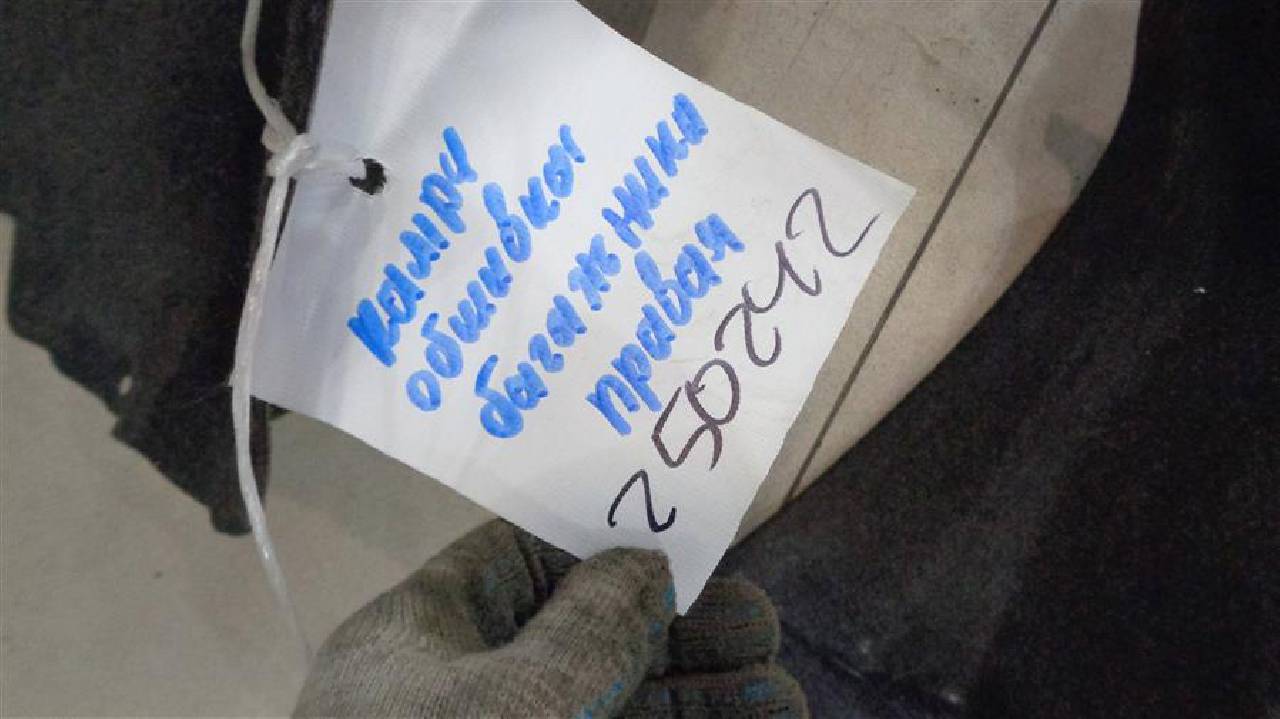 камри
обшивкы
багажника
правая
250242